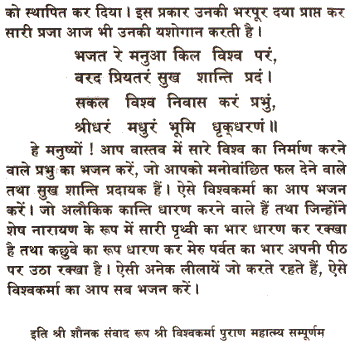 को स्थापित कर दिया । इस प्रकार उनकी भरपूर दया प्राप्त कर
सारी प्रजा आज भी उनकी यशोगान करती है ।
भजत रे मनुआ किल विश्व परं,
वरद प्रियतरं सुख शान्ति प्रदं ।
सकल विश्व निवास करं प्रभुं,
श्रीधरं मधुरं भूमि धृक्धरणं ॥
हे मनुष्यों ! आप वास्तव में सारे विश्व का निर्माण करने
वाले प्रभु का भजन करें, जो आपको मनोवांछित फल देने वाले
तथा सुख शान्ति प्रदायक हैं । ऐसे विश्वकर्मा का आप भजन
करें । जो अलौकिक कान्ति धारण करने वाले हैं तथा जिन्होंने
शेष नारायण के रूप में सारी पृथ्वी का भार धारण कर रक्खा
है तथा कछुवे का रूप धारण कर मेरु पर्वत का भार अपनी पीठ
पर उठा रक्खा है । ऐसी अनेक लीलायें जो करते रहते हैं, ऐसे
विश्वकर्मा का आप सब भजन करें ।
इति श्री शौनक संवाद रूप श्री विश्वकर्मा पुराण महात्म्य सम्पूर्णम